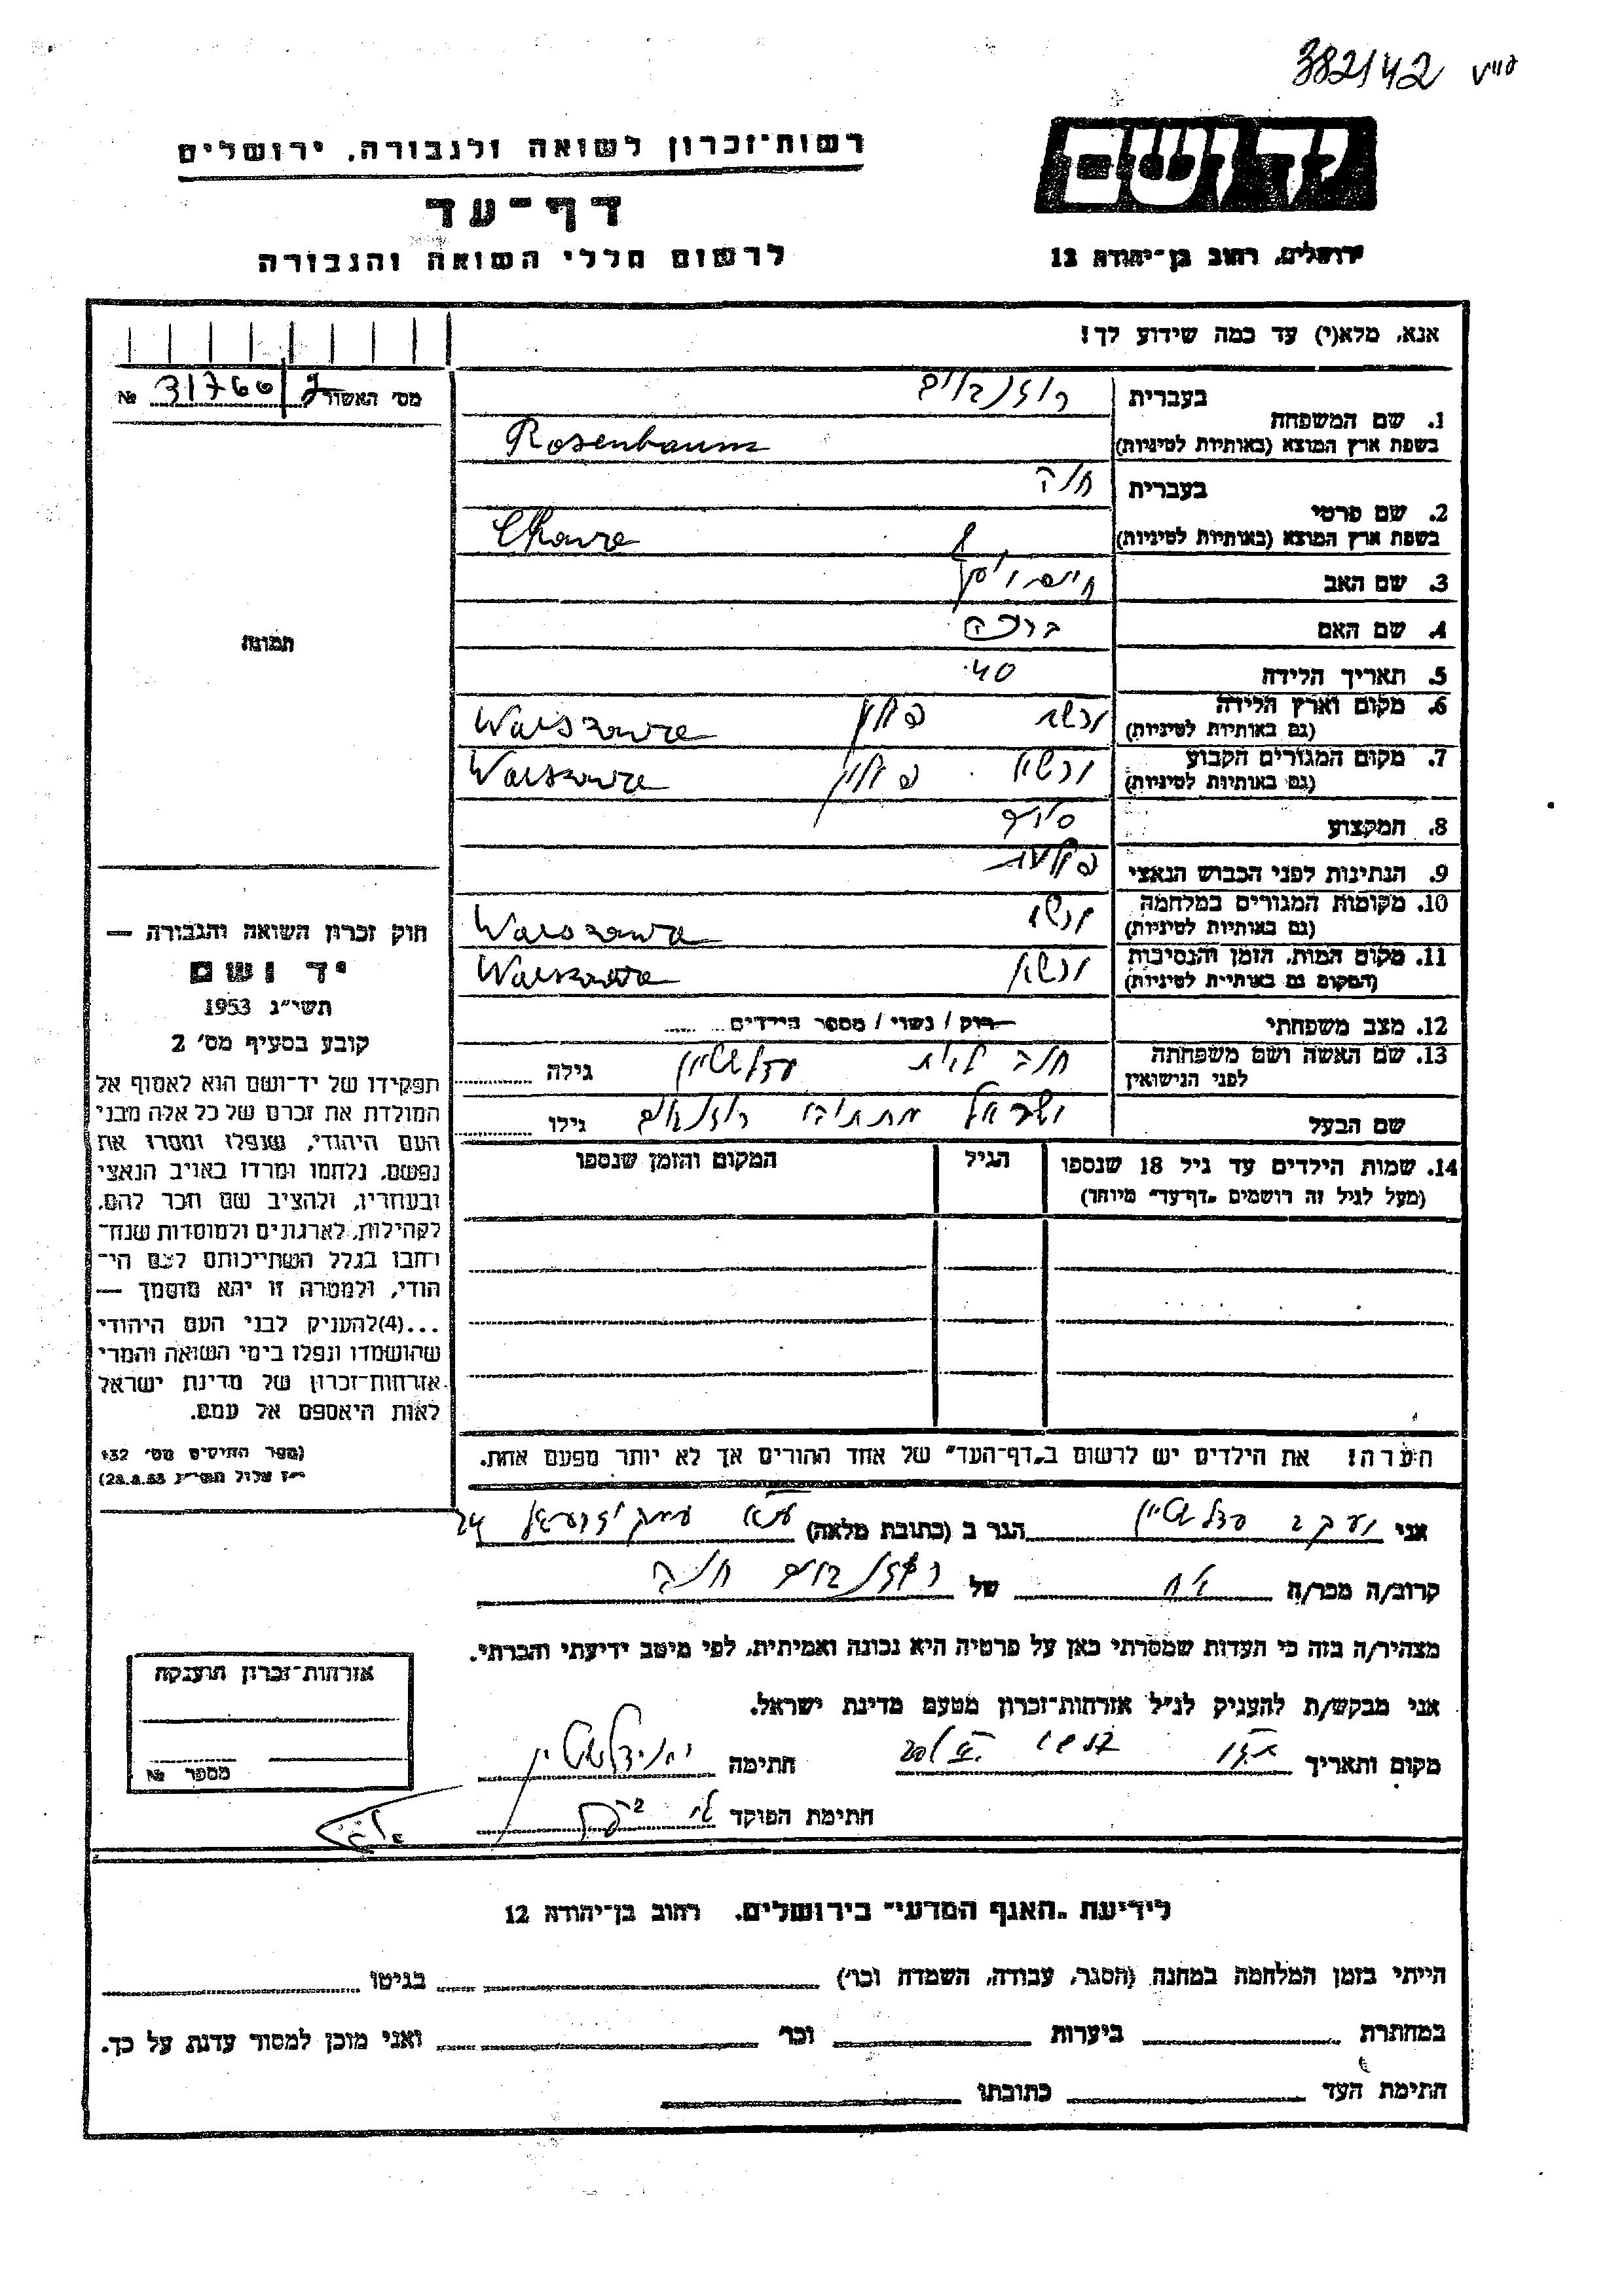 382142
רשות־זכרון לשואה ולגבורה, ירושלים
דף־עד
לרשום חללי השואה והגבורה
יד ושם
ירושלים, רחוב בן־יהודה 12
אנא, מלא(י) עד כמה שידוע לך!
מס׳ האשור 31766 №
1. שם המשפחה
בעברית
בשפת ארץ המוצא (באותיות לטיניות) Rosenbaum
2. שם פרטי
בעברית חנה
בשפת ארץ המוצא (באותיות לטיניות)
3. שם האב
4. שם האם ברכה
5. תאריך הלידה 40
6. מקום וארץ הלידה ורשה פולין Warszawa
(גם באותיות לטיניות)
7. מקום המגורים הקבוע ורשא פולין Warszawa
(גם באותיות לטיניות)
8. המקצוע
9. הנתינות לפני הכבוש הנאצי
10. מקומות המגורים במלחמה Warszawa
(גם באותיות לטיניות)
11. מקום המות, הזמן והנסיבות ורשא Warszawa
(המקום גם באותיית לטיניות)
12. מצב משפחתי רוק / נשוי / מספר הילדים
13. שם האשה ושם משפחתה
לפני הנישואין חנה לבית גילה
שם הבעל ישראל מתתיהו גילו
14. שמות הילדים עד גיל 18 שנספו
(מעל לגיל זה רושמים „דף־עד״ מיוחד)
הגיל
המקום והזמן שנספו
הערה! את הילדים יש לרשום ב„דף־העד״ של אחד ההורים אך לא יותר מפעם אחת.
תמונה
חוק זכרון השואה והגבורה —
יד ושם
תשי״ג 1953
קובע בסעיף מס׳ 2
תפקידו של יד־ושם הוא לאסוף אל
המולדת את זכרם של כל אלה מבני
העם היהודי, שנפלו ומסרו את
נפשם, נלחמו ומרדו באויב הנאצי
ובעוזריו, ולהציב שם וזכר להם,
לקהילות, לארגונים ולמוסדות שנח־
רחבו בגלל השתייכותם לעם הי־
הודי, ולמטרה זו יהא מוסמך —
...(4)להעניק לבני העם היהודי
שהושמדו ונפלו בימי השואה והמרי
אזרחות־זכרון של מדינת ישראל
לאות היאספם אל עמם.
(ספר החוקים מס׳ 132
י״ז אלול תשי״ג 28.8.53)
אני יעקב הגר ב (כתובת מלאה) 24
קרוב/ה מכר/ה אח של חנה
מצהיר/ה בזה כי העדות שמסרתי כאן על פרטיה היא נכונה ואמיתית, לפי מיטב ידיעתי והכרתי.
אני מבקש/ת להעניק לנ״ל אזרחות־זכרון מטעם מדינת ישראל.
מקום ותאריך חתימה
חתימת הפוקד
אזרחות־זכרון הוענקה
מספר №
לידיעת „האגף המדעי״ בירושלים, רחוב בן־יהודה 12
הייתי בזמן המלחמה במחנה (הסגר, עבודה, השמדה וכו׳) בגיטו
במחתרת ביערות וכו׳ ואני מוכן למסור עדות על כך.
חתימת העד כתובתו